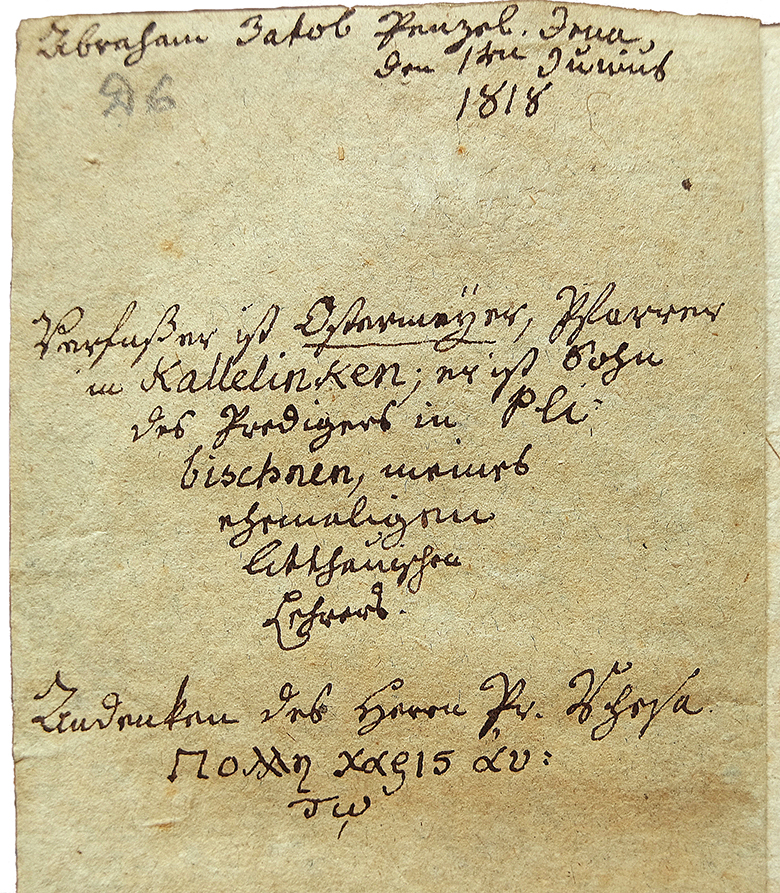 Abraham Jakob Penzel. Jena,
den 1ten Junius
1818
D 6
Verfaßer ist Ostermeÿer, Pfarrer
in Kallelinken; er ist Sohn
des Predigers in Pli-
bischnen, meines
ehemaligen
litthauischen
Lehrers.
Andenken des Herrn Pr. Rhesa.
Πολλη χαρις αυ:
τῳ